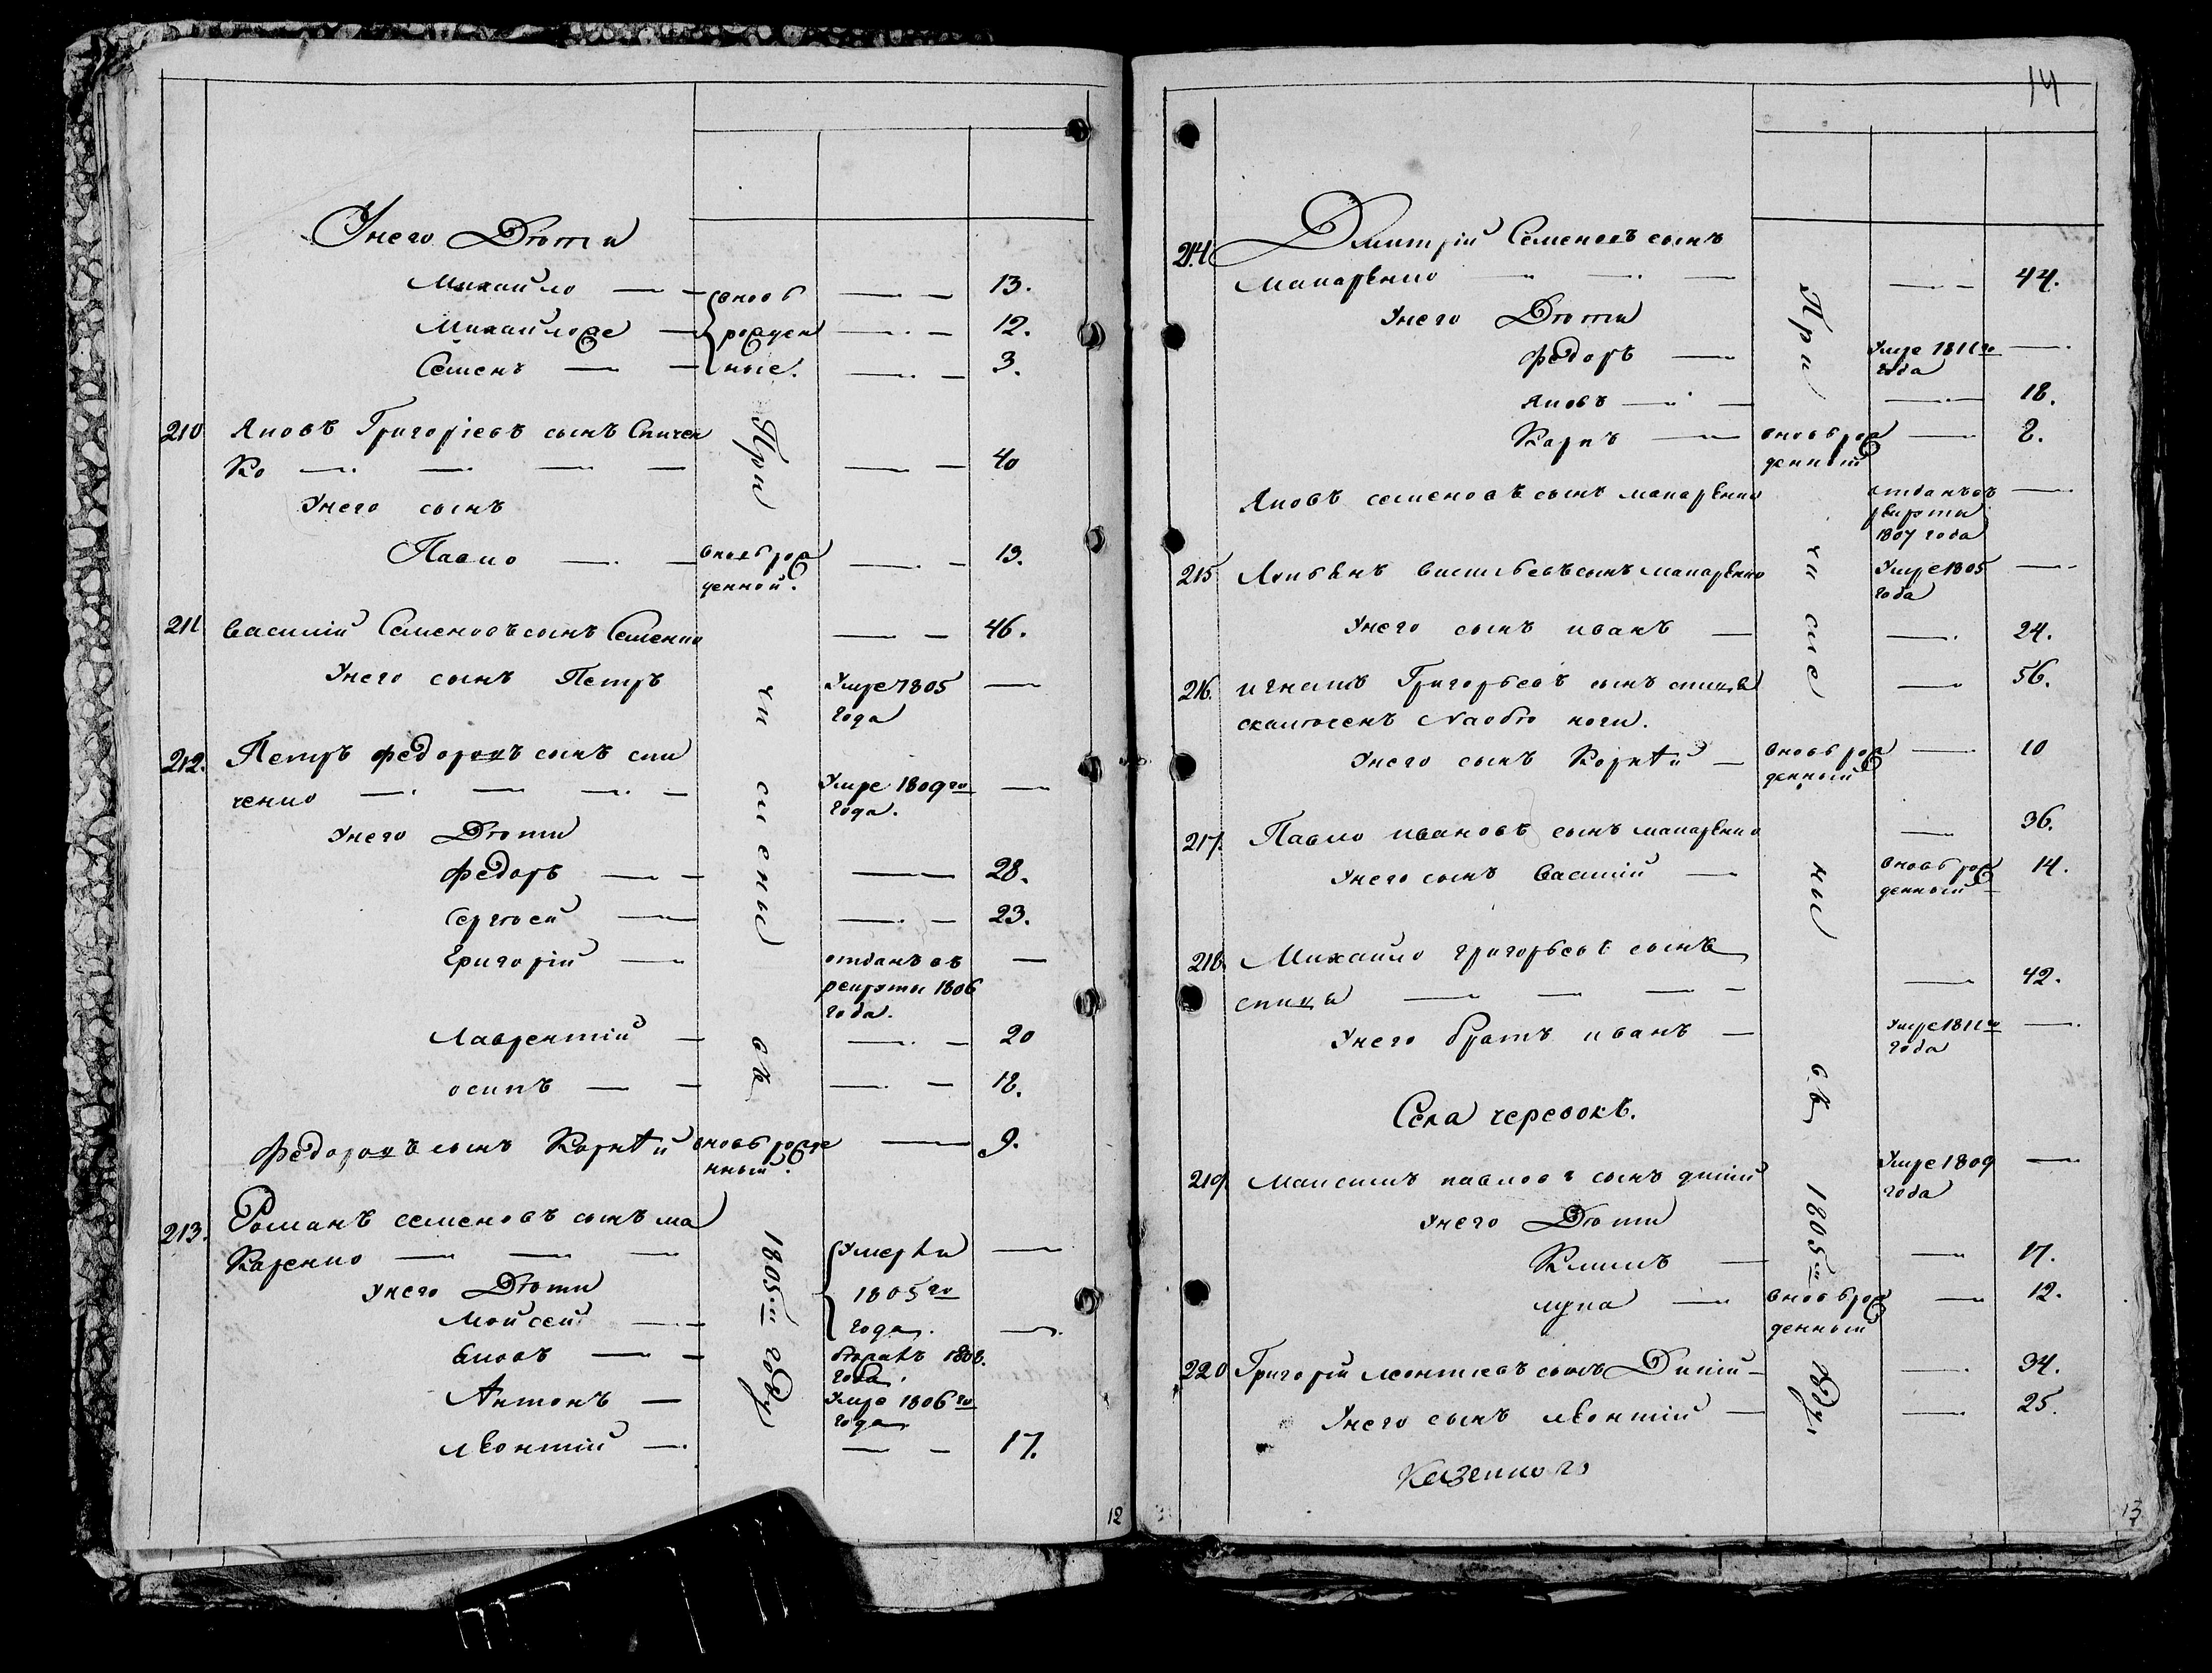 У него Дѣти
Михайло — — вновь — — 13.
Михайло же — рожден — — 12.
Семенъ — — ные. — — 3.
210 Яковъ Григоріевъ сынъ Спичен
ко — — — — — — 40
У него сынъ
Павло — — вновь рож — — 13.
денной.
211 Василій Семеновъ сынъ Семенко — — 46.
У него сынъ Петръ Умре 1805 —
года
212. Петръ Федоровъ сынъ спи
ченко — — — — Умре 1809го —
года.
У него Дѣти
Федоръ — — — — 28.
Сергѣей — — — 23.
Григорій — отданъ въ —
рекруты 1806
года.
Лаврентій — — — 20
осипъ — — — — 18.
Федоровъ сынъ Корнѣй вновь рожде — 9.
нный.
213. Романъ семеновъ сынъ ма
каренко — — — умерли —
У него Дѣти 1805го
Мойсей — — года. —
Яковъ — — 1808.
года.
Антонъ — Умре 1806го
года
леонтій — — — 17.
При чи сленые въ 1805й году
12
14
214 Дмитрій Семеновъ сынъ
макаренко — — — — — 44.
У него Дѣти
Федоръ — Умре 1811го —
года
Яковъ — — — 18.
Карпъ — вновь рож — 8.
денный
Яковъ семеновъ сынъ макаренко отданъ въ —
рекруты
1807 года
215 Лукьянъ васильевъ сынъ макаренко Умре 1805 —
года
У него сынъ иванъ — — 24.
216. игнатъ Григорьевъ сынъ — 56.
ноги.
У него сынъ Корнѣй — вновь рож — 10
денный
217. Павло ивановъ сынъ макаренко — 36.
У него сынъ Василій — вновь рож 14.
денный —
218. Михайло григорьевъ сынъ
— — — — — 42.
У него братъ иванъ — умре 1811го —
года
Села черевокъ.
219. Максимъ павловъ сынъ дикій Умре 1809 —
года
У него Дѣти
Климъ — — 17.
лука — вновь рож — 12.
денный
220 Григорій леонтіевъ сынъ Дикій — — 34.
У него сынъ леонтій — — 25.
Казенного
При чи сле ные въ 1805й году.
13